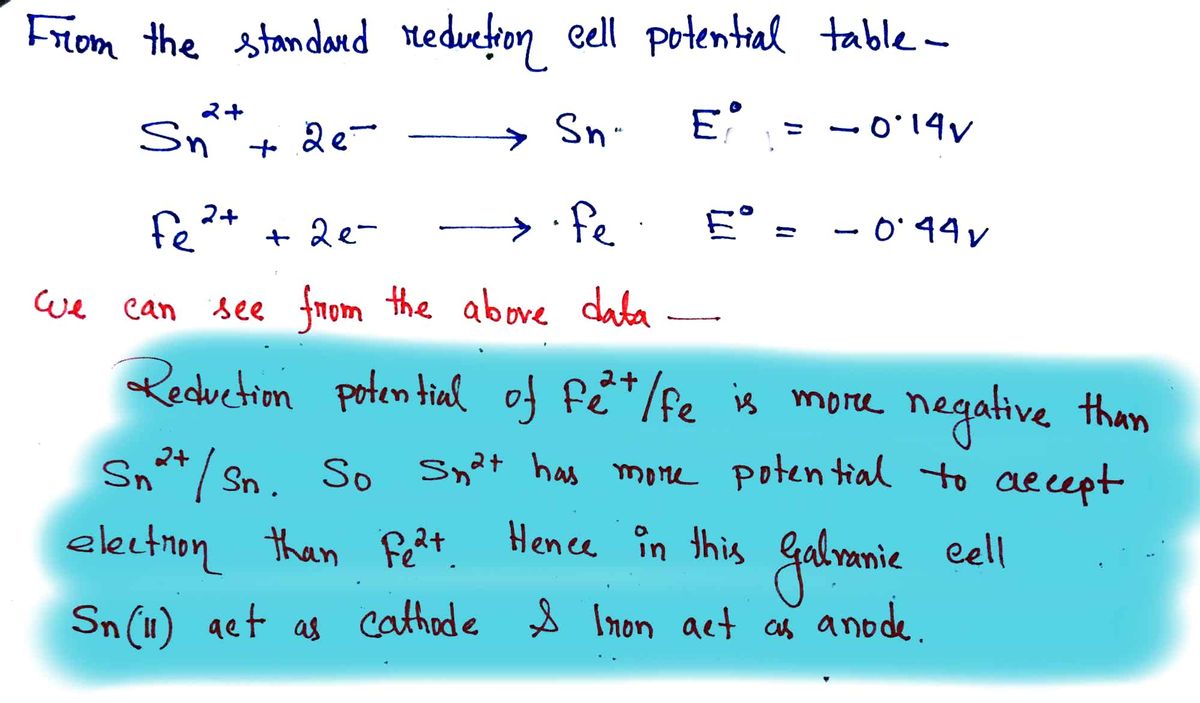 From the standard reduction cell potential table-
Sn²⁺ + 2e⁻ ⟶ Sn E° = -0.14v
Fe²⁺ + 2e- ⟶ Fe E° = -0.44v
We can see from the above data —
Reduction potential of Fe²⁺/Fe is more negative than
Sn²⁺/Sn. So Sn²⁺ has more potential to accept
electron than Fe²⁺. Hence in this Galvanic cell
Sn(II) act as cathode & Iron act as anode.